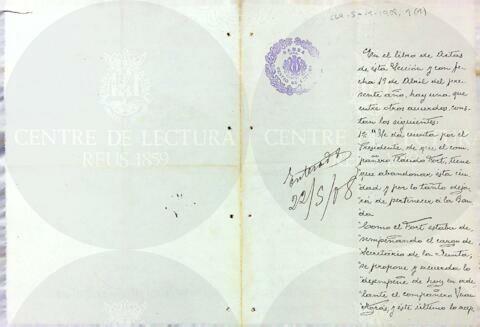 CENTRE DE LECTURA
REUS 1859
Enterado
22/5/08
En el libro de Actas
de ésta Sección y con fe
cha 19 de Abril del pre
sente año, hay una que
entre otros acuerdos, cons
tan los siguientes:
1º "Se da cuenta por el
"Presidente, de que el com
"pañero Plácido Fort, tiene
"que abandonar ésta ciu
"dad y por lo tanto deja
"rá de pertenecer a la Ban
"da
"Como el Fort estaba de
"sempeñando el cargo de
"Secretario de la Junta,
"se propone y acuerda lo
"desempeñe de hoy en ade
"lante el compañero Juan
y éste último lo acep